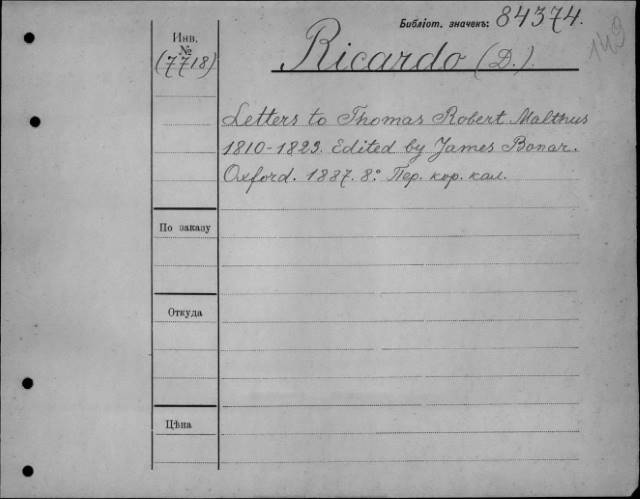 Библіот. значекъ: 84374.
149
Инв.
№
(7718)
Ricardo (D.).
Letters to Thomas Robert Malthus
1810-1823. Edited by James Bonar.
Oxford. 1887. 8° Пер. кор. кал.
По заказу
Откуда
Цѣна